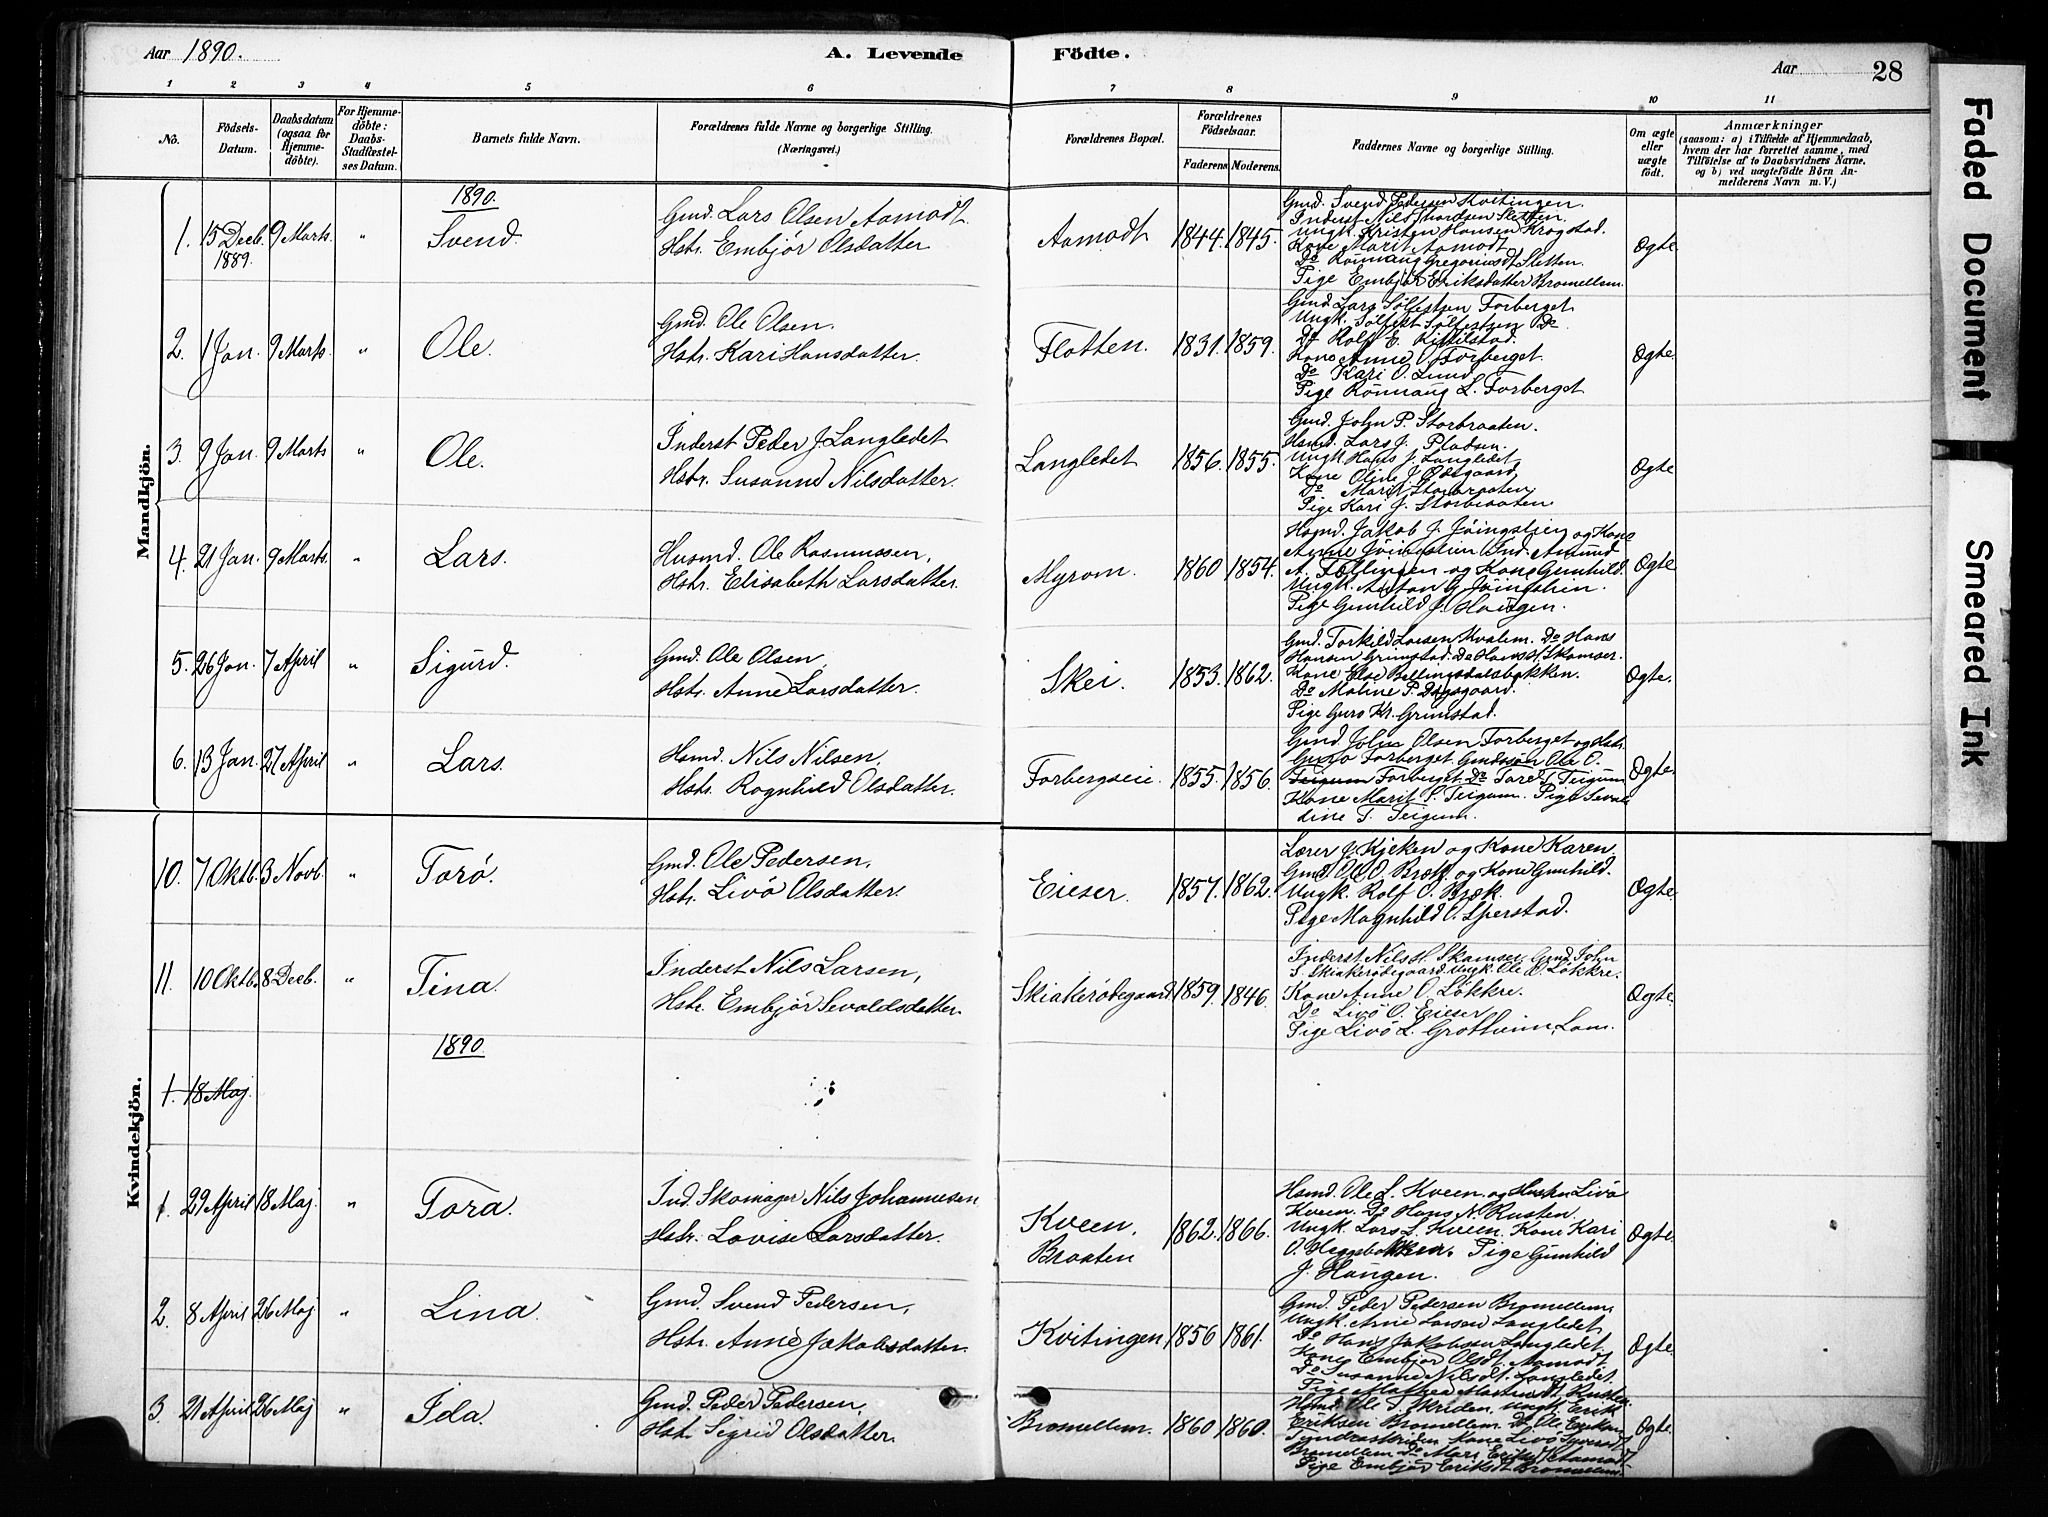 Aar 1890. A. Levende Födte. Aar 28
1 2 3 4 5 6 7 8 9 10 11
No.
Födsels-Datum.
Daabsdatum (ogsaa for Hjemmedöbte).
For Hjemmedöbte: Daabs-Stadfæstelses Datum.
Barnets fulde Navn.
Forældrenes fulde Navne og borgerlige Stilling.
(Næringsvei.)
Forældrenes Bopæl.
Forældrenes Födselsaar.
Faderens Moderens.
Faddernes Navne og borgerlige Stilling.
Om ægte eller uægte födt.
Anmærkninger
(saasom: a) i Tilfælde af Hjemmedaab,
hvem der har forrettet samme, med
Tilföielse af to Daabsvidners Navne,
og b) ved uægtefödte Börn Anmelderens Navn m. V.)
Mandkjön.
1890.
1. 15 Decb. 1889. 9 Marts. " Svend.
Gmd. Lars Olsen Aamodt
Hstr. Embjör Olsdatter
Aamodt 1844. 1845.
Gmd. Svend Pedersen Kvitingen.
Inderst Nils Thordsen Sletten.
Ungk. Kristen Hansen Krogstad.
Kone Marit Aamodt
Do Rönnaug Gregoriusdt Sletten.
Pige Embjör Eriksdatter Bromellem.
Ægte
2. 1 Jan. 9 Marts " Ole.
Gmd. Ole Olsen.
Hstr. Kari Hansdatter.
Flotten. 1831. 1859.
Gmd Lars Sölfestsen Forberget
Ungk. Sölfest Sölfestsen Do.
Do Rolf E. Kittilstad.
Kone Anne O. Forberget.
Do Kari O. Lund
Pige Rönnaug L. Forberget
Ægte
3. 9 Jan. 9 Marts " Ole.
Inderst Peder J. Langledet
Hstr. Susanne Nilsdatter.
Langledet 1856. 1855.
Gmd. John P. Storbraaten.
Hsmd. Lars J. Pladsen.
Ungk Hans J. Langledet
Kone Oline J. Ødegaard
Do Marit Storbraaten
Pige Kari J. Storbraaten
Ægte
4. 21 Jan. 9 Marts. " Lars.
Husmd. Ole Rasmussen,
Hstr. Elisabeth Larsdatter.
Myrom. 1860 1854.
Hsmd. Jakob J. Jöingslien og Kone
Anne Jöingslien Ind. Amund
A. Föllingen og Kone Gunhild.
Ungk. Anton G. Jöingslien.
Pige Gunhild J. Haugen.
Ægte
5. 26 Jan. 7 April " Sigurd.
Gmd. Ole Olsen,
Hstr. Anne Larsdatter.
Skei. 1853. 1862.
Gmd. Torkild Larsen Kvalem. Do Hans
Hansen Grimstad. Do Hans H. Skamser.
Kone Else Bellingsdalsbakken.
Do Maline P. Dagsgaard.
Pige Guro Kr. Grimstad.
Ægte.
6. 13 Jan. 27 April " Lars.
Hsmd. Nils Nilsen,
Hstr. Rognhild Olsdatter.
Forbergseie. 1855. 1856.
Gmd. John Olsen Forberget og Hstr.
Guro Forberget. Gmdssön Ole O.
Teigum Forberget. Do Tore T. Teigum
Kone Marit S. Teigum. Pige Sevaldine T. Teigum.
Ægte.
Kvindekjön.
10. 7 Oktb. 3 Novb. " Torö.
Gmd. Ole Pedersen,
Hstr. Livö Olsdatter.
Eieser. 1857. 1862.
Lærer J. Kjeken og Kone Karen.
Gmd Ole O. Bræk. og Kone Gunhild.
Ungk. Rolf O. Bræk.
Pige Magnhild O. Sperstad.
Ægte
11. 10 Oktb. 8 Decb. " Tina.
Inderst Nils Larsen,
Hstr. Embjör Sevaldsdatter.
Skiakerødegaard 1859. 1846.
Inderst Nils H. Skamser. Gmd John
S. Skiakerødegaard. Ungk. Ole O. Løkkre.
Kone Anne O. Løkkre.
Do Livö O. Eieser
Pige Livö L. Grotheim, Lom.
Ægte.
1890.
1. 18 Maj.
1. 29 April 18 Maj. " Tora.
Ind. Skomager Nils Johannesen
Hstr. Lovise Larsdatter.
Kveen, Braaten 1862. 1866.
Hsmd. Ole L. Kveen og Hustru Livö
Kveen. Do Hans N. Rusten.
Ungk. Lars L. Kveen. Kone Kari
O. Heggebakken. Pige Gunhild
J. Haugen.
Ægte.
2. 8 April 26 Maj " Lina.
Gmd. Svend Pedersen,
Hstr. Anne Jakobsdatter.
Kvitingen 1856 1861.
Gmd. Peder Pedersen Bromellem,
Ungk. Arne Larsen Langledet
Do Hans Jakobsen Langledet.
Kone Embjör Olsdt. Aamodt
Do Susanne Nilsdt. Langledet.
Pige Mathea Rusten
Ægte.
3. 21 April 26 Maj " Ida.
Gmd. Peder Pedersen,
Hstr. Sigrid Olsdatter.
Bromellem. 1860 1860.
Hsmd. Ole S. Skriden. Ungk. Erik
Eriksen Bromellem. Do Ole Eriksen
Kone Livö
Bromellem Do Mari Eriksdt Aamodt
Pige Embjör Eriksdt Bromellem.
Ægte.
Faded Document
Smeared Ink